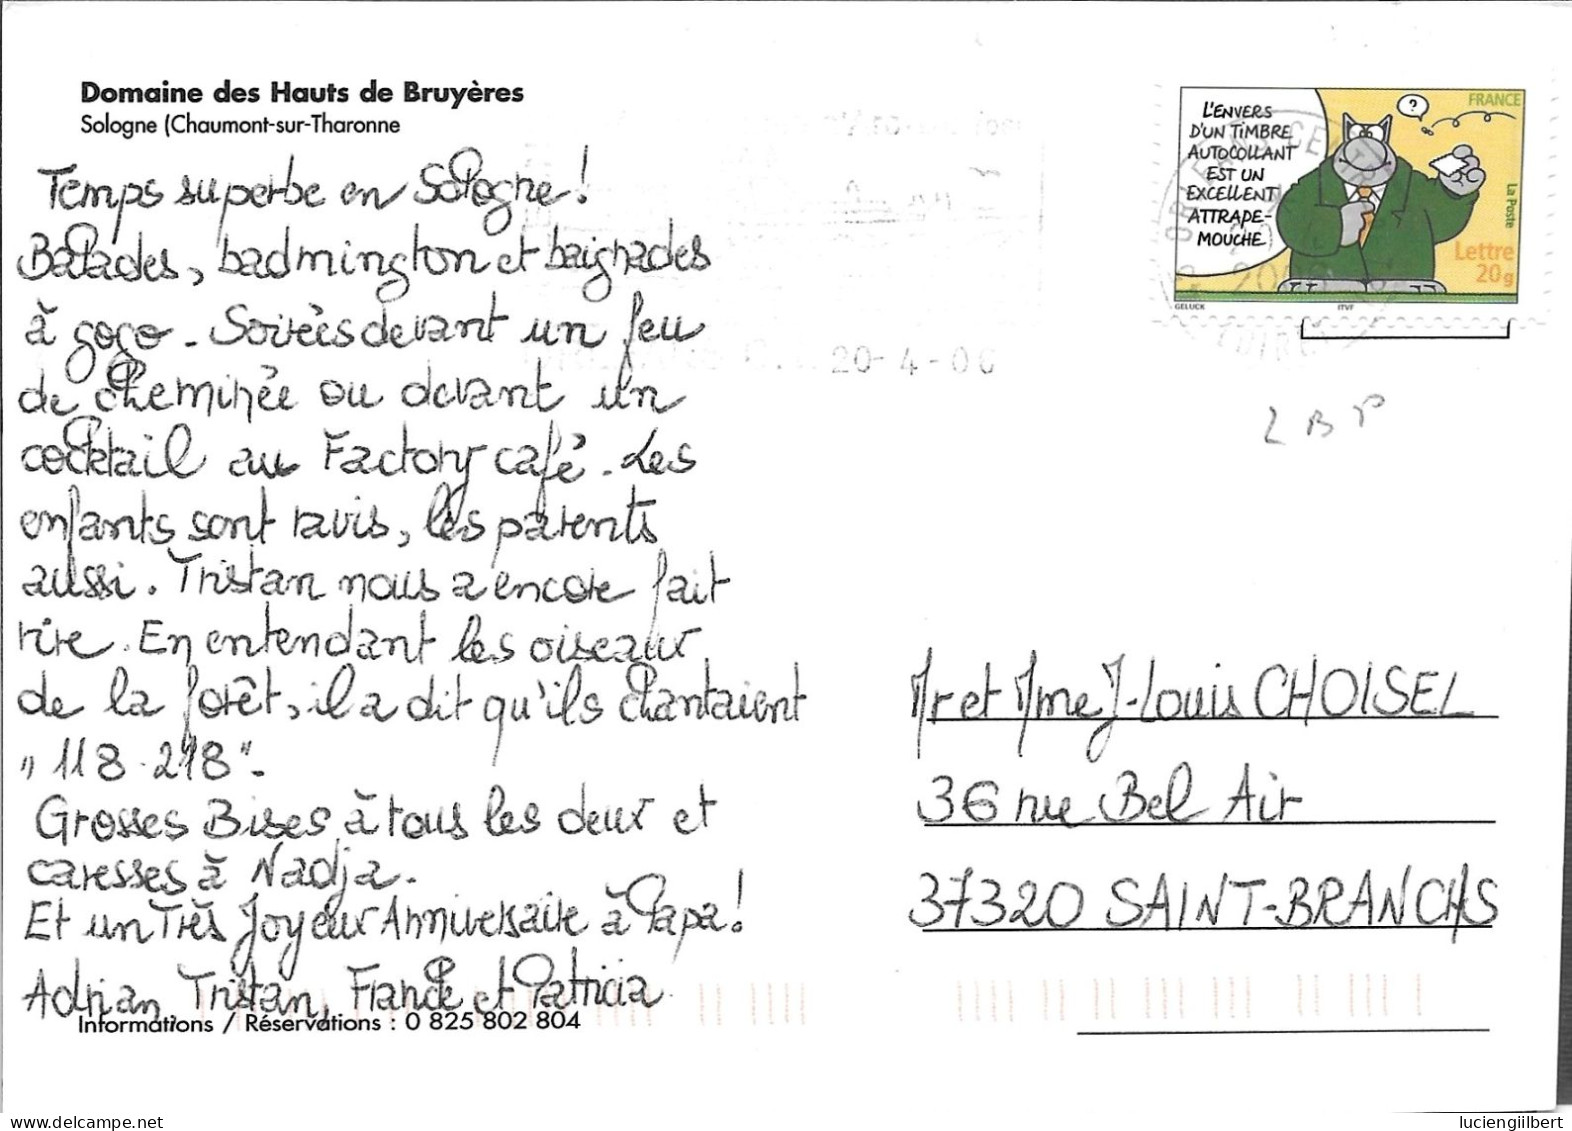 Domaine des Hauts de Bruyères
Sologne (Chaumont-sur-Tharonne
Temps superbe en Sologne!
Balades, badmington et baignades
à gogo. Soirées devant un feu
de cheminée ou devant un
cocktail au Factory café. Les
enfants sont ravis, les parents
aussi. Tristan nous a encore fait
rire. En entendant les oiseaux
de la forêt, il a dit qu'ils chantaient
"118.218".
Grosses Bises à tous les deux et
caresses à Nadja.
Et un Très Joyeux Anniversaire à Papa!
Adrian, Tristan, Franck et Patricia
Informations / Réservations : 0 825 802 804
L'ENVERS
D'UN TIMBRE
AUTOCOLLANT
EST UN
EXCELLENT
ATTRAPE-
MOUCHE
?
FRANCE
La Poste
Lettre
20g
GELUCK
ITVF
20-4-06
Mr et Mme J-Louis CHOISEL
36 rue Bel Air
37320 SAINT-BRANCHS
luciengilbert